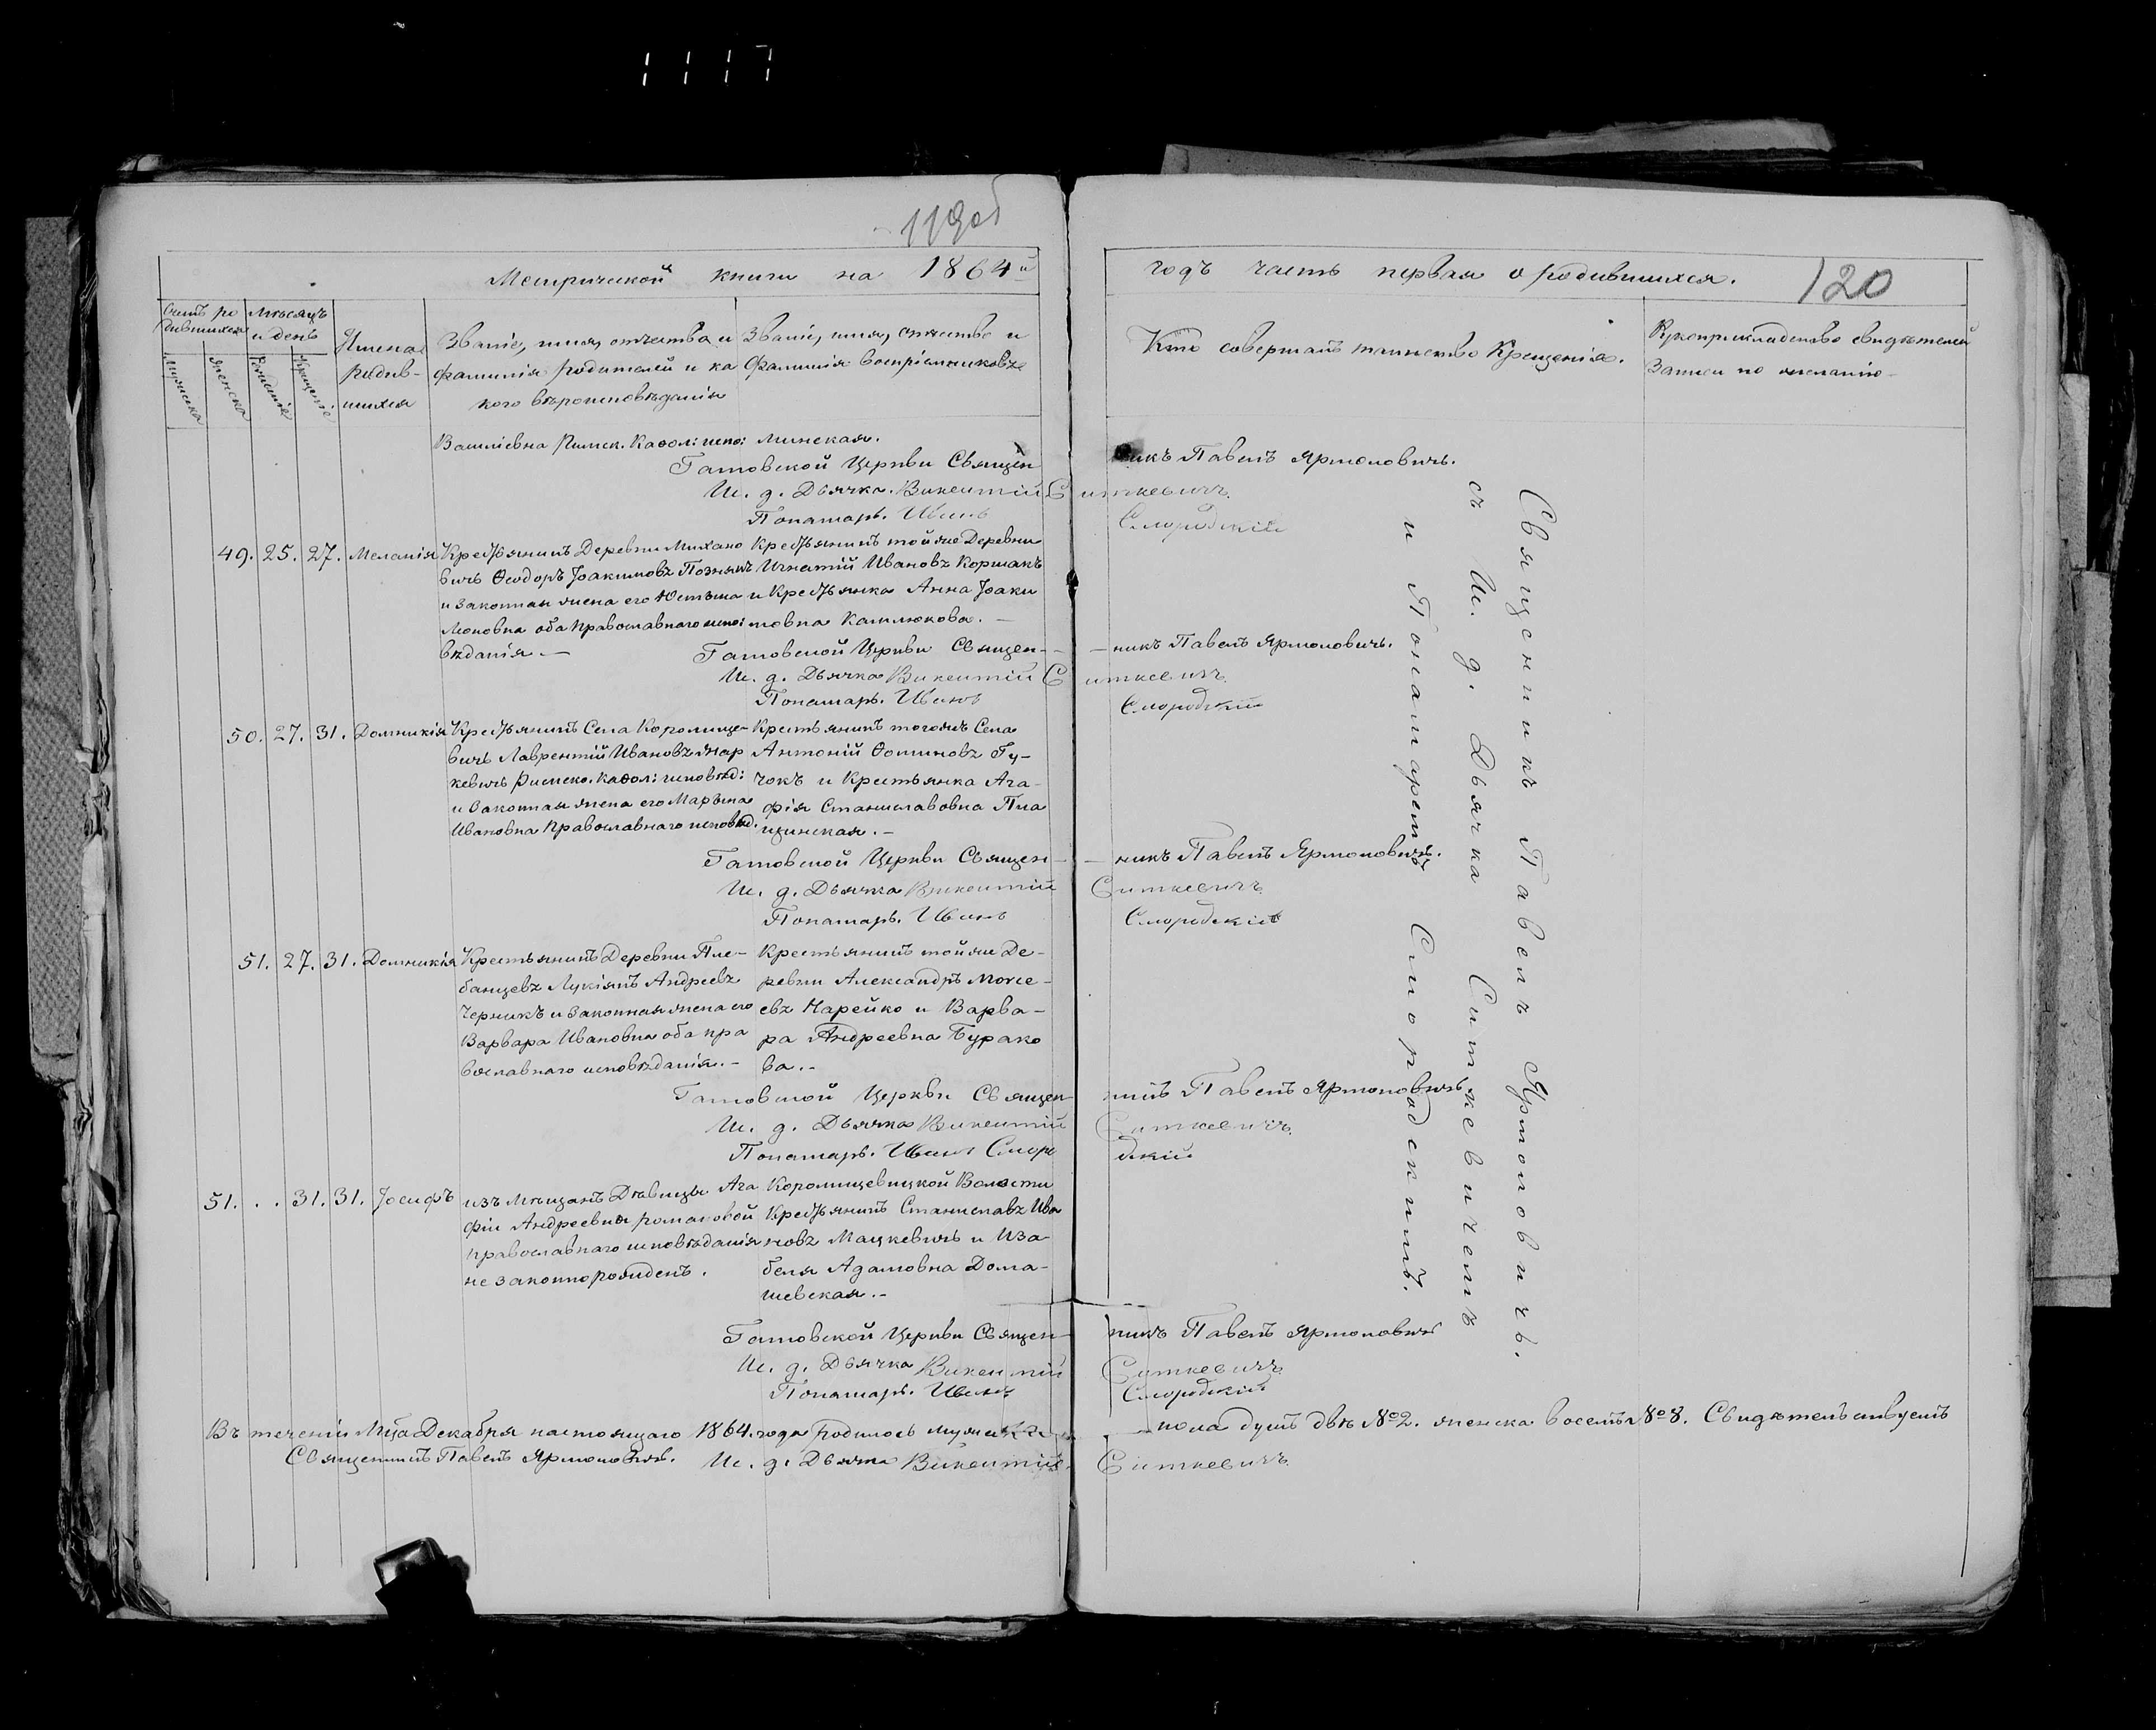 1117
119 об
Метрической книги на 1864 й
годъ часть первая о родившихся.
120
Счетъ ро
дившихся
Мѣсяцъ
и день
Мужска
Женска
Рожденія
Крещенія
Имена
родив-
шихся
Званіе, имя, отчества и
фамилія родителей и ка
кого вѣроисповѣданія
Званіе, имя, отчество и
Фамилія воспріемниковъ
Кто совершалъ таинство Крещенія.
Рукоприкладство свидѣтелей
Записи по желанію
Василіевна Римск. Каѳол: испо:
минская.
Гатовской Церкви Священ
никъ Павелъ Ярмоловичъ.
И. д. Дьячка. Викентій Ситкевичъ
Понамарь. Иванъ Смородскій
49. 25. 27. Меланія
Крестьянинъ Деревни Михано
вичь Ѳеодоръ Іоакимовъ Познякъ
и законная жена его Юстына
моновна оба православнаго испо:
вѣданія. —
Крестьянинъ той же Деревни
Игнатій Ивановъ Коршакъ
и Крестьянка Анна Іоаки
мовна Камлюкова. —
Гатовской Церкви Священ-
-никъ Павелъ Ярмоловичъ.
И. д. Дьячка Викентій Ситкевичъ
Понамарь. Иванъ Смородскій
50. 27. 31. Домникія
Крестьянинъ Села Королище-
вичь Лаврентій Ивановъ Жар
кевичь Римско. Каѳол: исповѣд:
и законная жена его Марьяна
Ивановна Православнаго исповѣд.
Крестьянинъ тогожъ Села
Антоній Ѳоминовъ Гу-
чокъ и Крестьянка Ага-
фія Станиславовна Пла
щинская. —
Гатовской Церкви Священ-
-никъ Павелъ Ярмоловичъ.
И. д. Дьячка Викентій Ситкевичъ
Понамарь. Иванъ Смородскій
51. 27. 31. Домникія
Крестьянинъ Деревни Пле-
банцевъ Лукіянъ Андреевъ
Черникъ и законная жена его
Варвара Ивановна оба пра
вославнаго исповѣданія. —
Крестьянинъ той же Де-
ревни Александръ Моисе-
евъ Нарейко и Варва-
ра Андреевна Бурако
ва. —
Гатовской Церкви Священ-
никъ Павелъ Ярмоловичъ
И. д. Дьячка Викентій Ситкевичъ
Понамарь. Иванъ Смородскій
51. . . 31. 31. Іосифъ
изъ мѣщанъ Дѣвицы Ага
фіи Андреевны романовой
православнаго исповѣданія
не законнорожденъ.
Королищевицкой Волости
Крестьянинъ Станиславъ Ива
новъ Мацкевичъ и Иза
беля Адамовна Дома-
шевская. —
Гатовской Церкви Священ-
никъ Павелъ Ярмоловичъ
И. д. Дьячка Викентій Ситкевичъ
Понамарь. Иванъ Смородскій
Священникъ Павелъ Ярмоловичъ.
съ И. д. Дьячка Ситкевичемъ
и Понамаремъ Смородскимъ.
Въ теченіи Мца Декабря настоящаго 1864. года родилось мужска пола душъ двѣ № 2. женска восемь № 8. Свидѣтельствуемъ
Священникъ Павелъ Ярмоловичъ. И. д. Дьячка Викентій Ситкевичъ